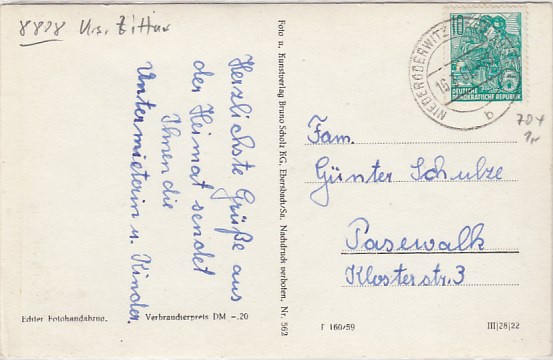 8808 Krs. Zittau
Herzlichste Grüße aus
der Heimat sendet
Ihnen die
Untermieterin u. Kinder.
Echter Fotohandabzug.
Verbraucherpreis DM -.20
Foto u. Kunstverlag Bruno Scholz KG, Ebersbach/Sa. Nachdruck verboten. Nr. 562
NIEDERODERWITZ
16
b
10
5
DEUTSCHE
DEMOKRATISCHE REPUBLIK
704
Fam.
Günter Schulze
Pasewalk
Klosterstr. 3
I 160/59
III|28|22